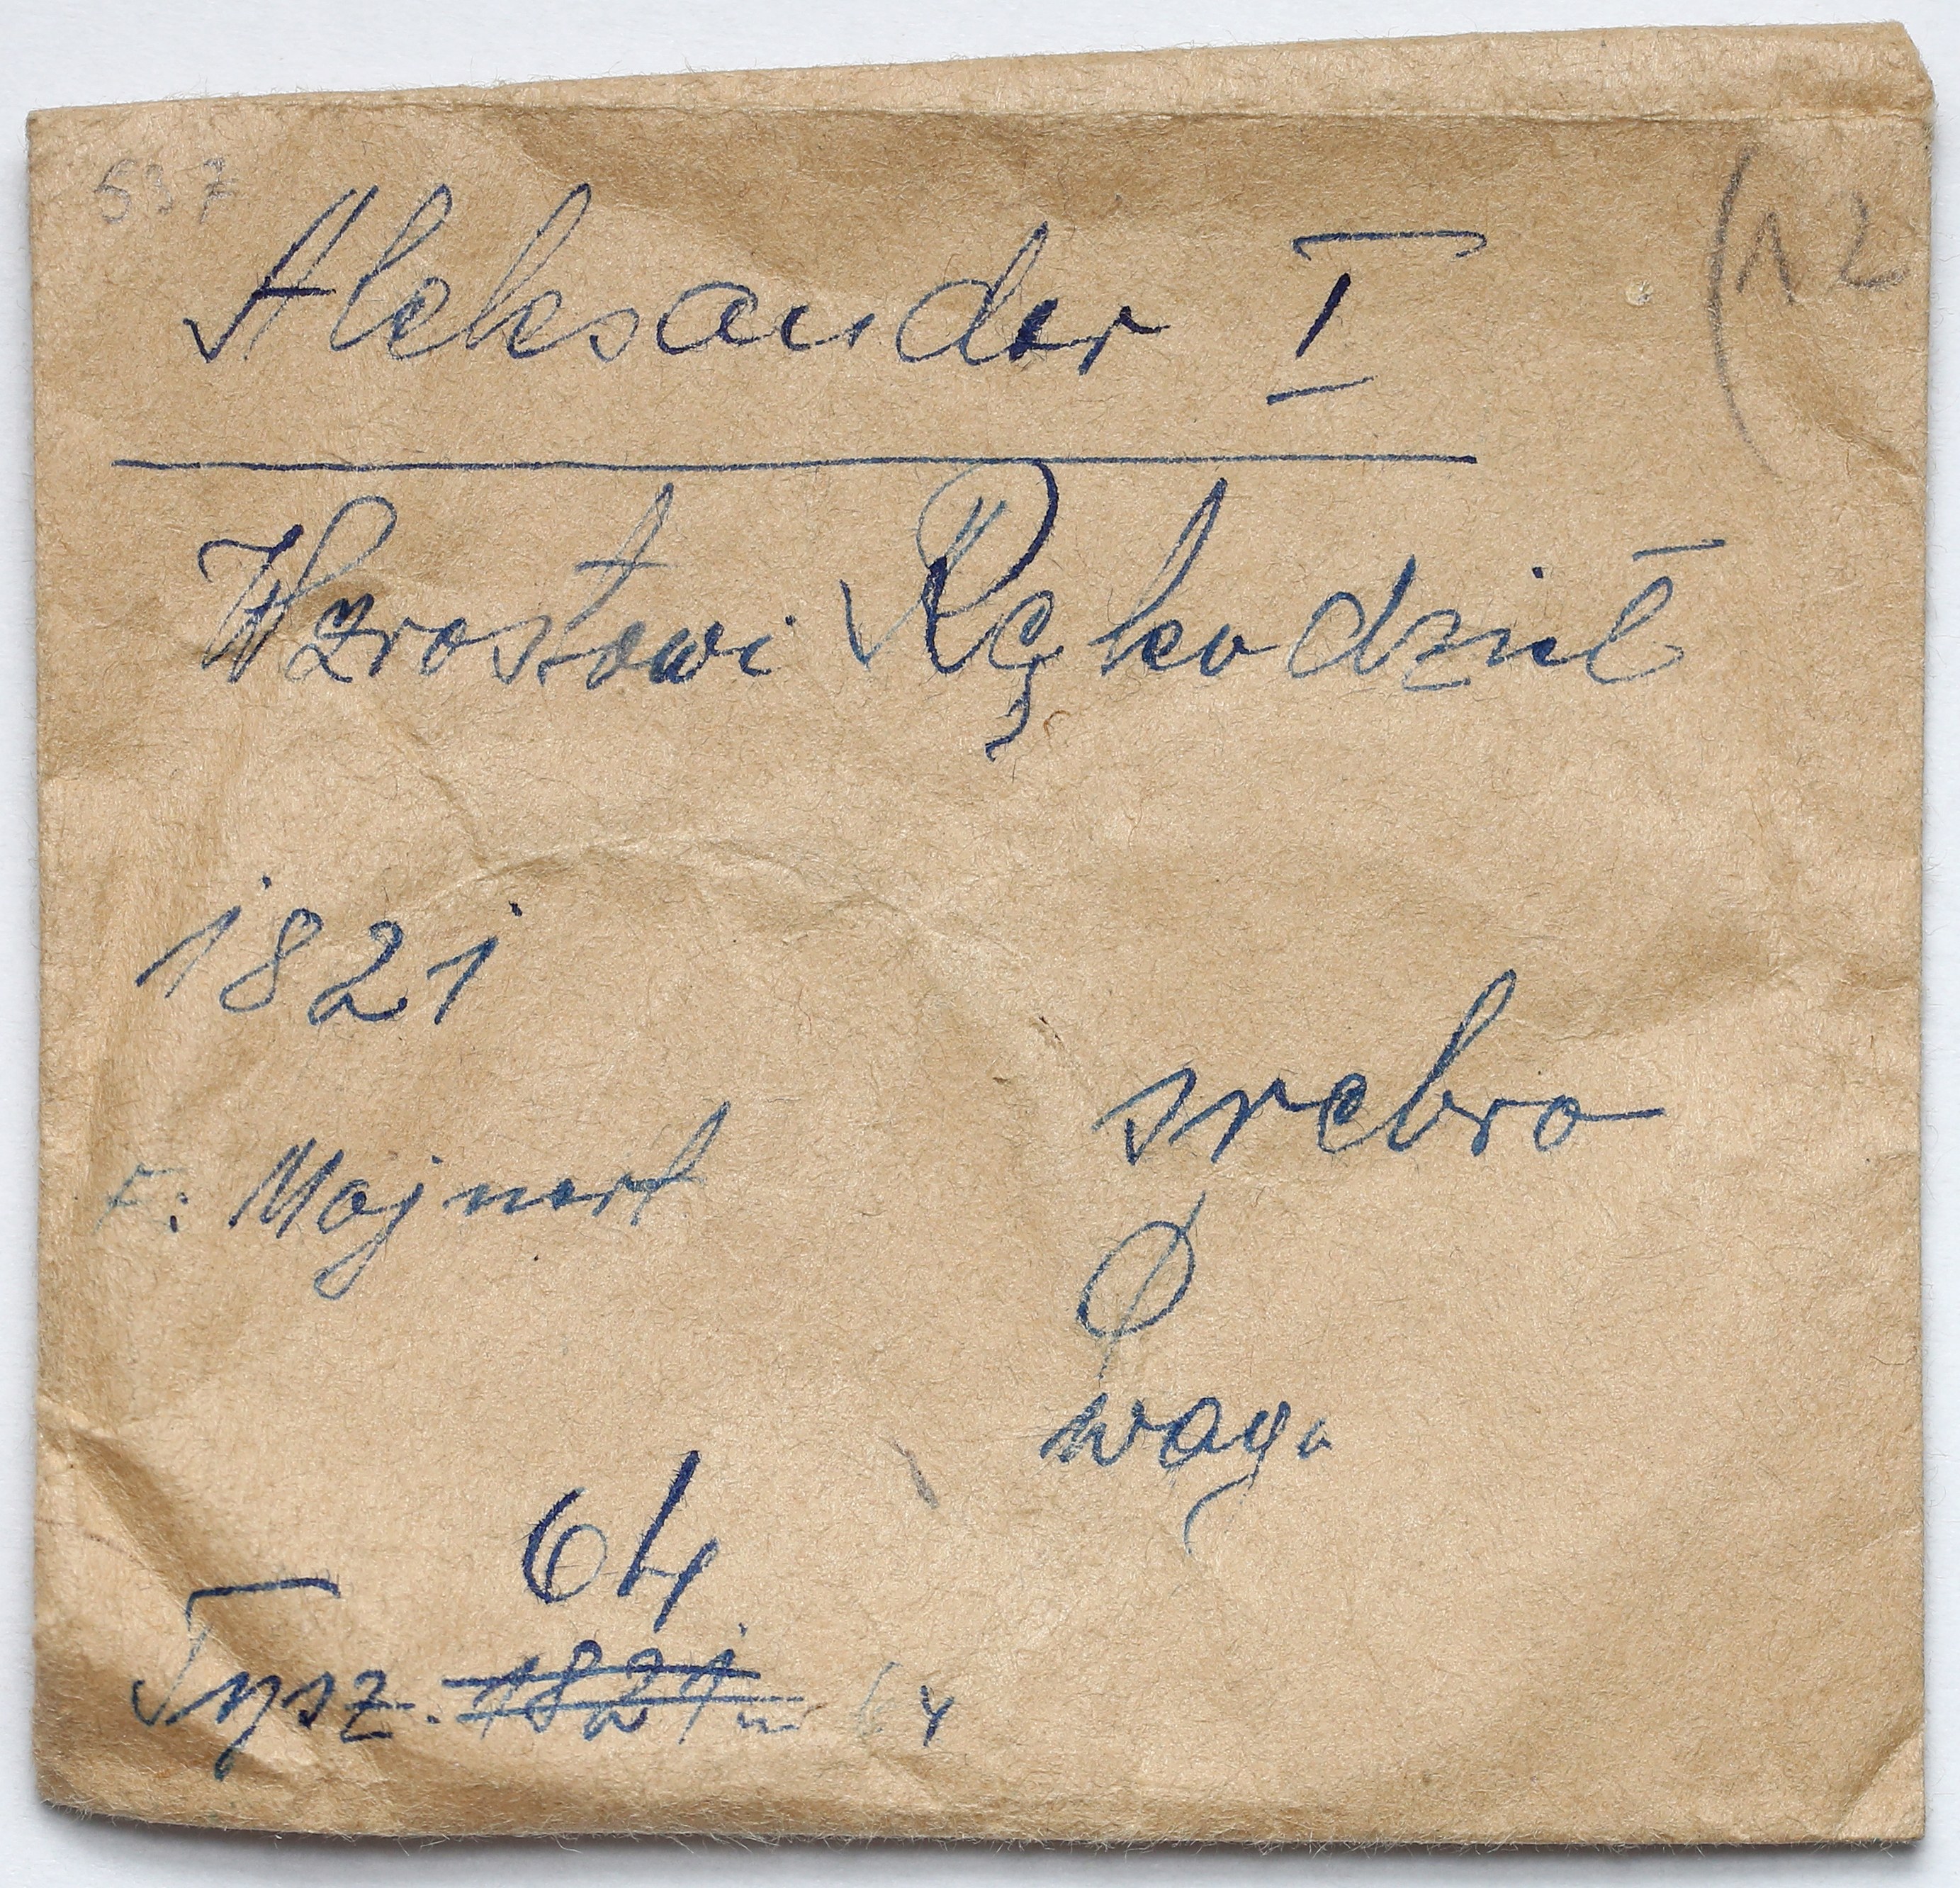 537
(12
Aleksander I
Wzrostowi Rękodzieł
1821
srebro
F: Majnert
Ø
waga
64
Tysz. 1821 64